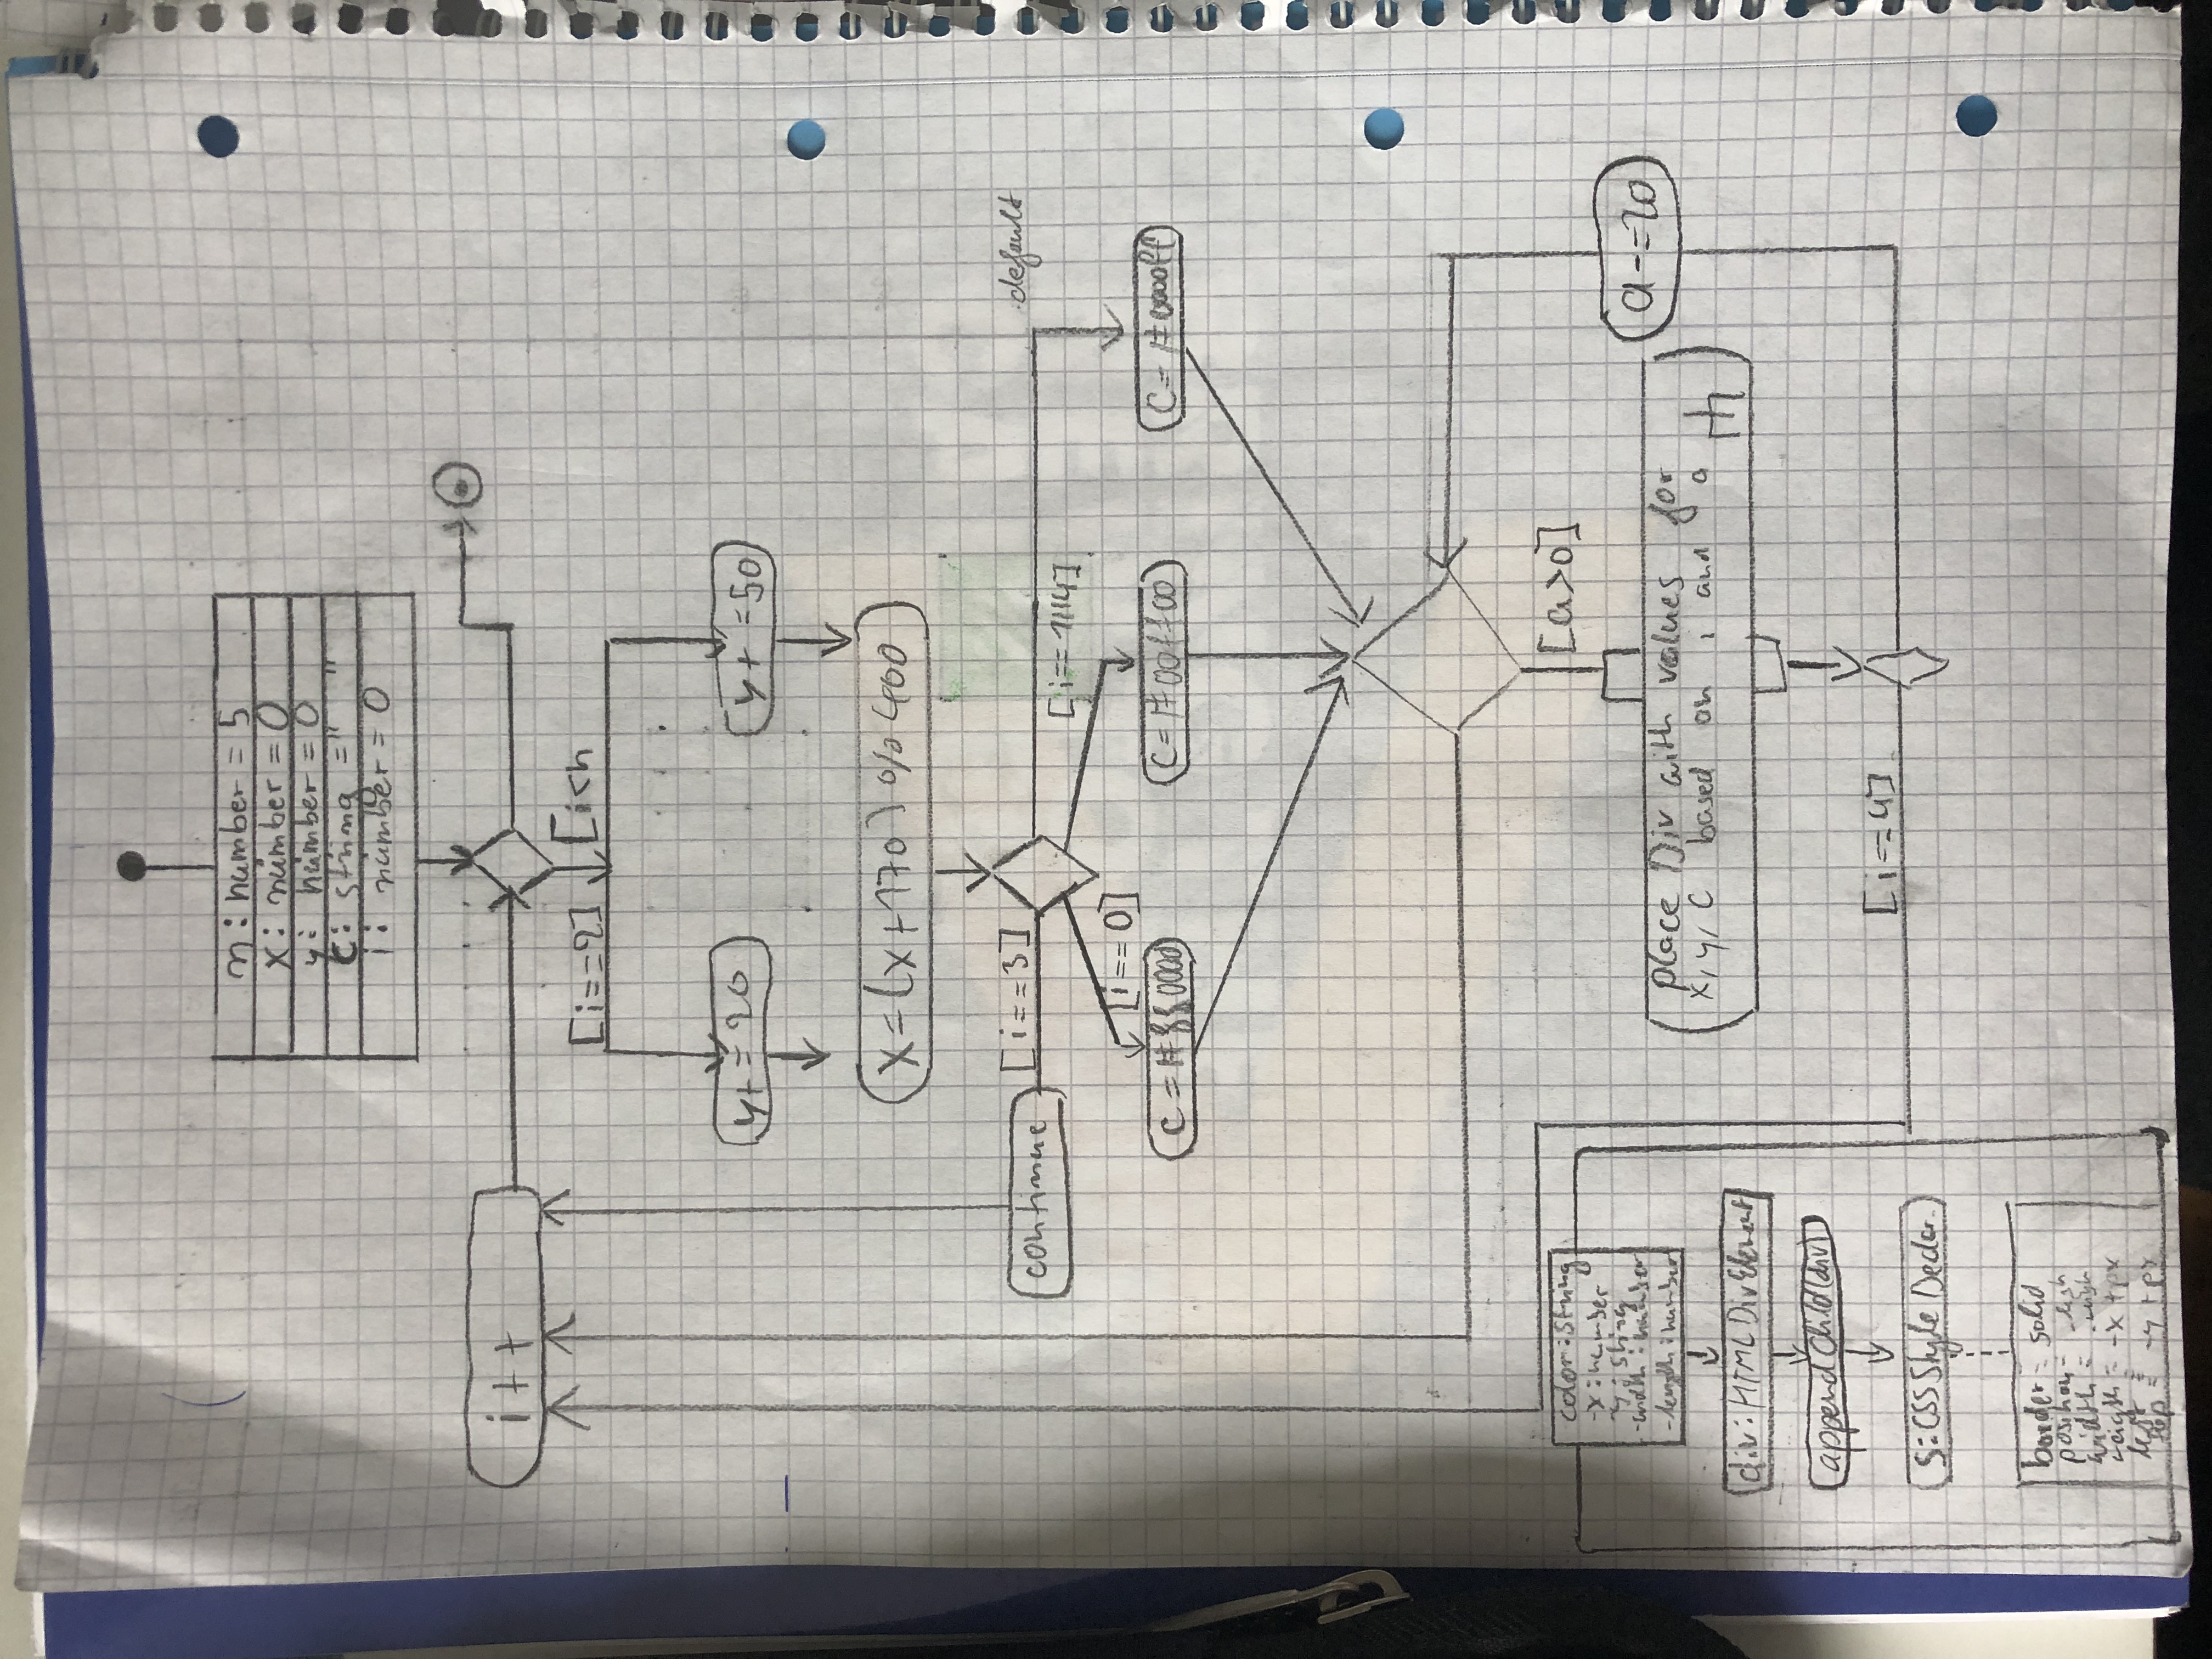 n : number = 5
x : number = 0
y : number = 0
c : string = " "
i : number = 0
i++
[i==2]
[i<n
y+=20
y+=50
x=(x+170)%400
continue
[i==3]
default
[i==1||4]
[i==0]
c=#ff0000
c=#00ff00
c=#0000ff
[a>0]
a-=20
place Div with values for
x, y, c based on i and a
[i==4]
color:string
-x:number
-y:string
-width:number
-length:number
div:HTMLDivElement
appendChild(div)
s:CSSStyleDeclar.
border = solid
position =
width =
= -x+px
left =
top = -y+px